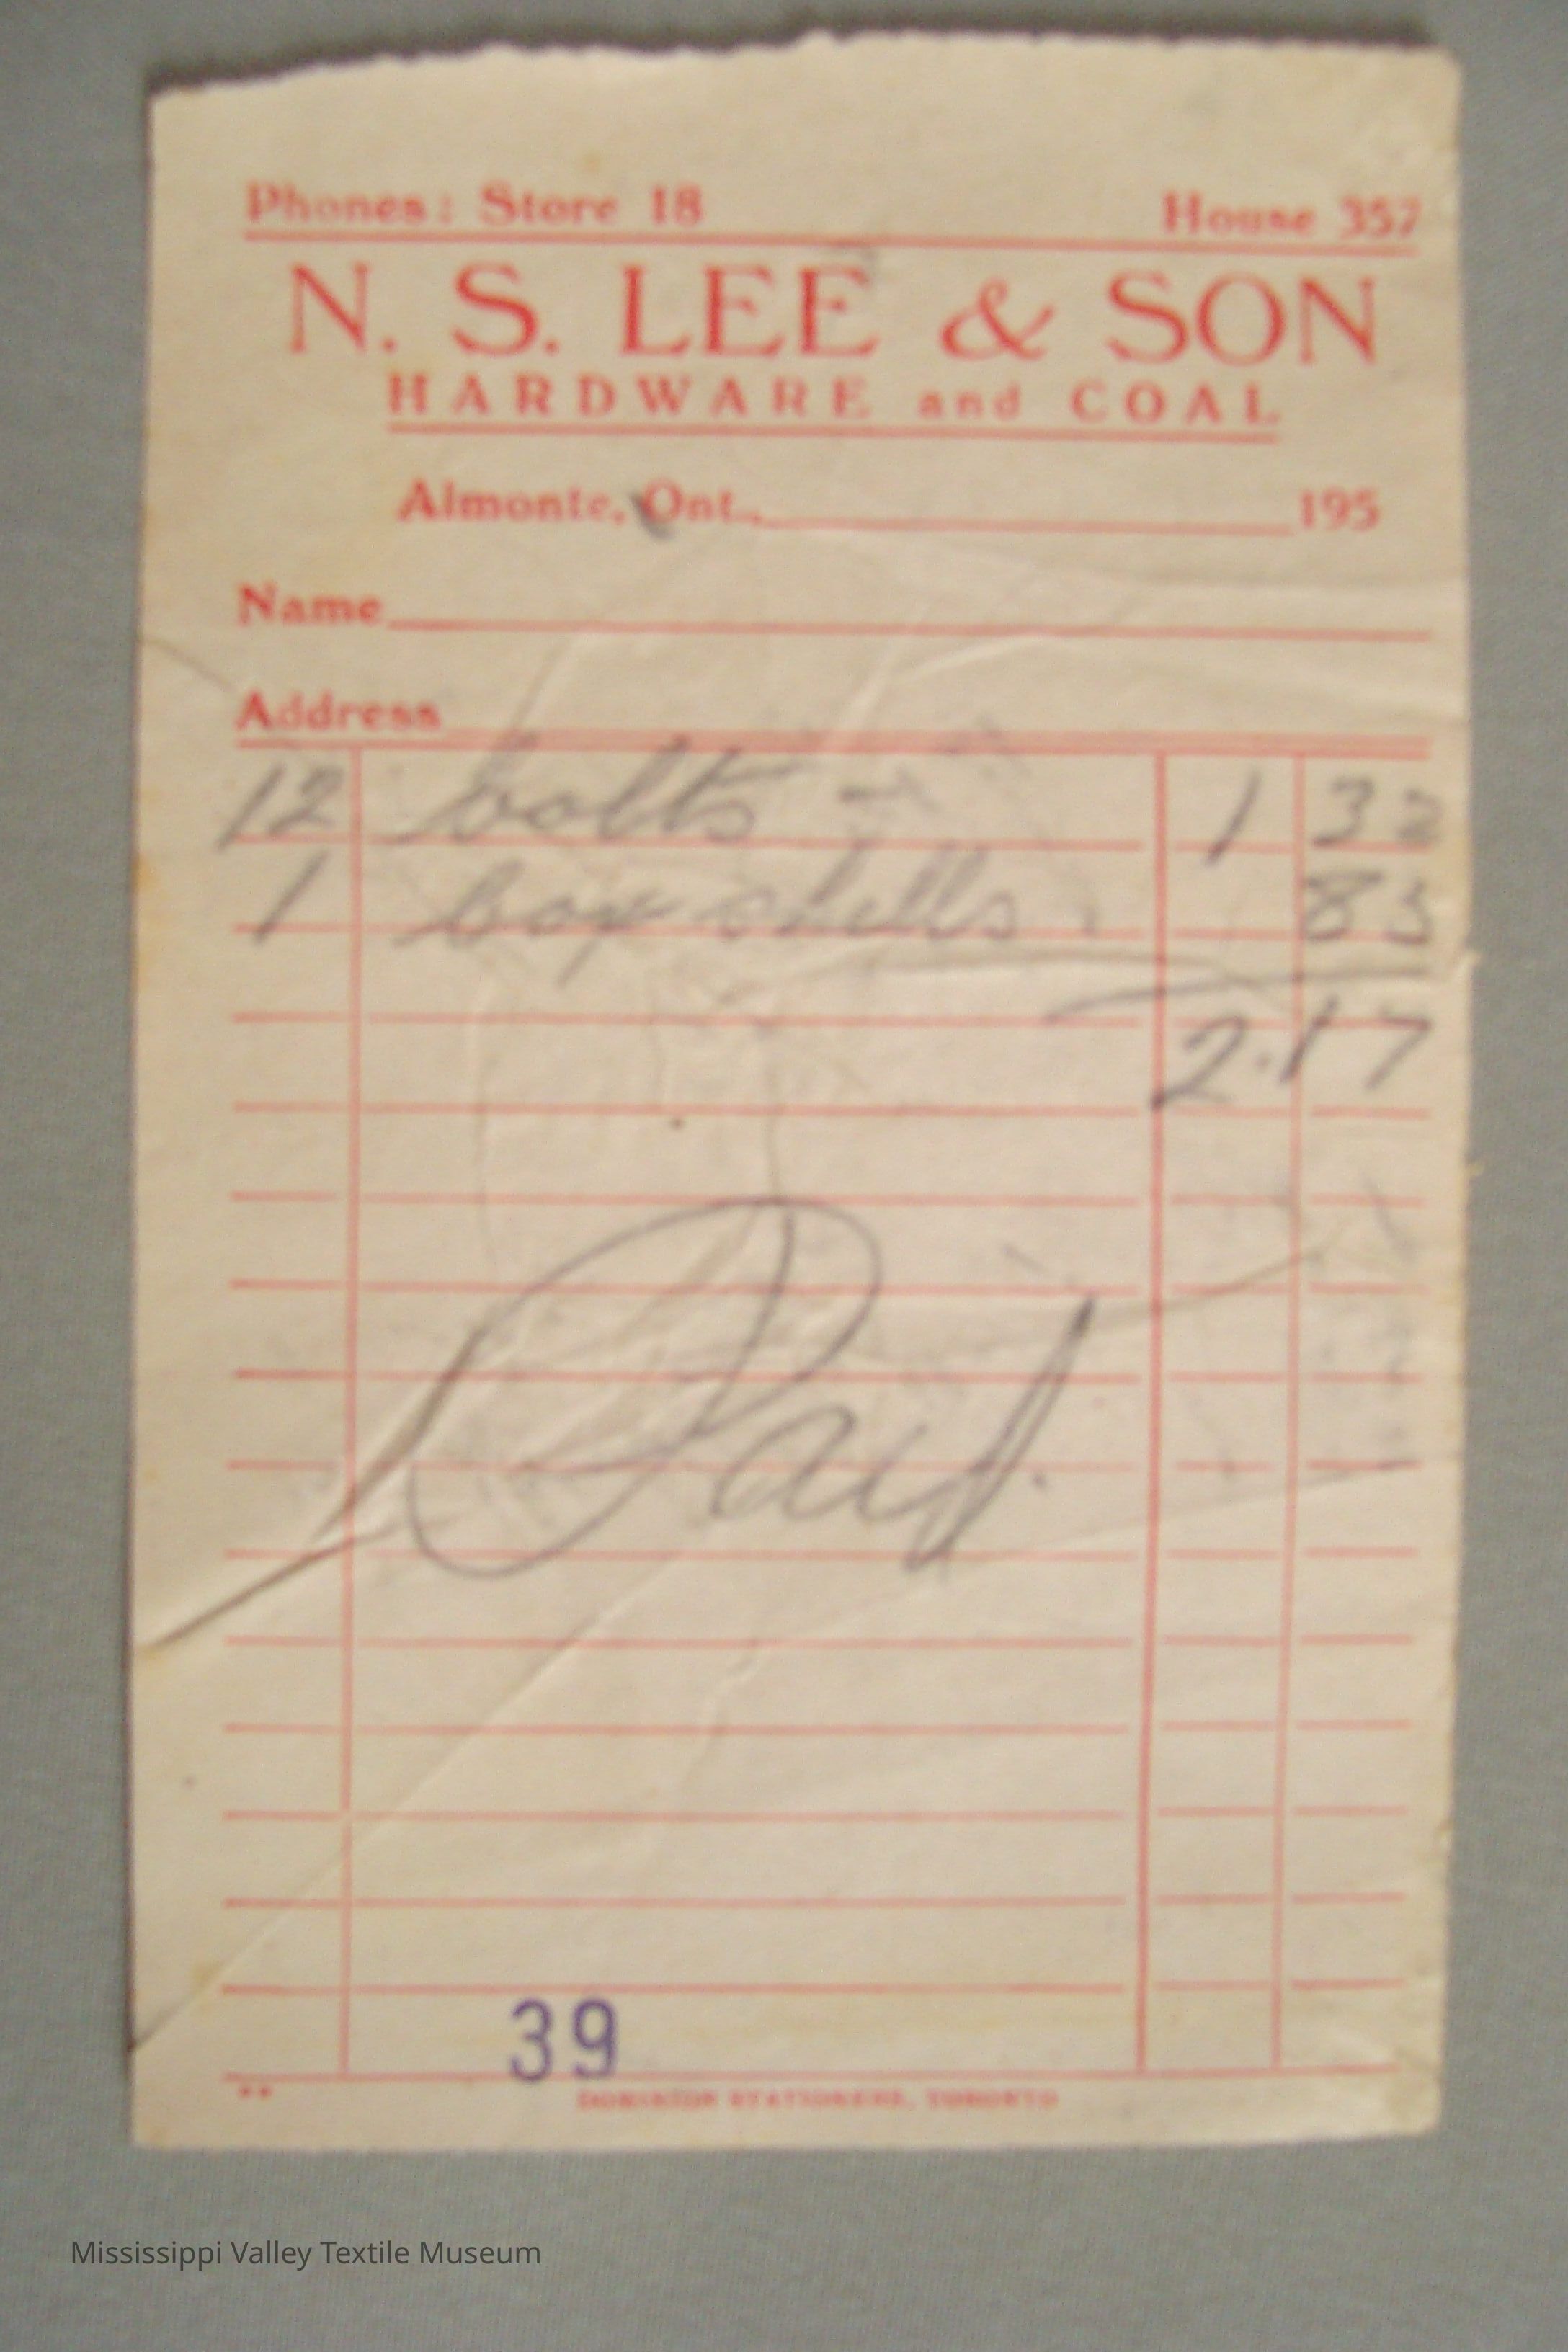 Phones: Store 18 House 357
N. S. LEE & SON
HARDWARE and COAL
Almonte, Ont., 195
Name
Address
12 bolts - 1 32
1 box shells. 85
2.17
Paid.
39
DOMINION STATIONERS, TORONTO
Mississippi Valley Textile Museum